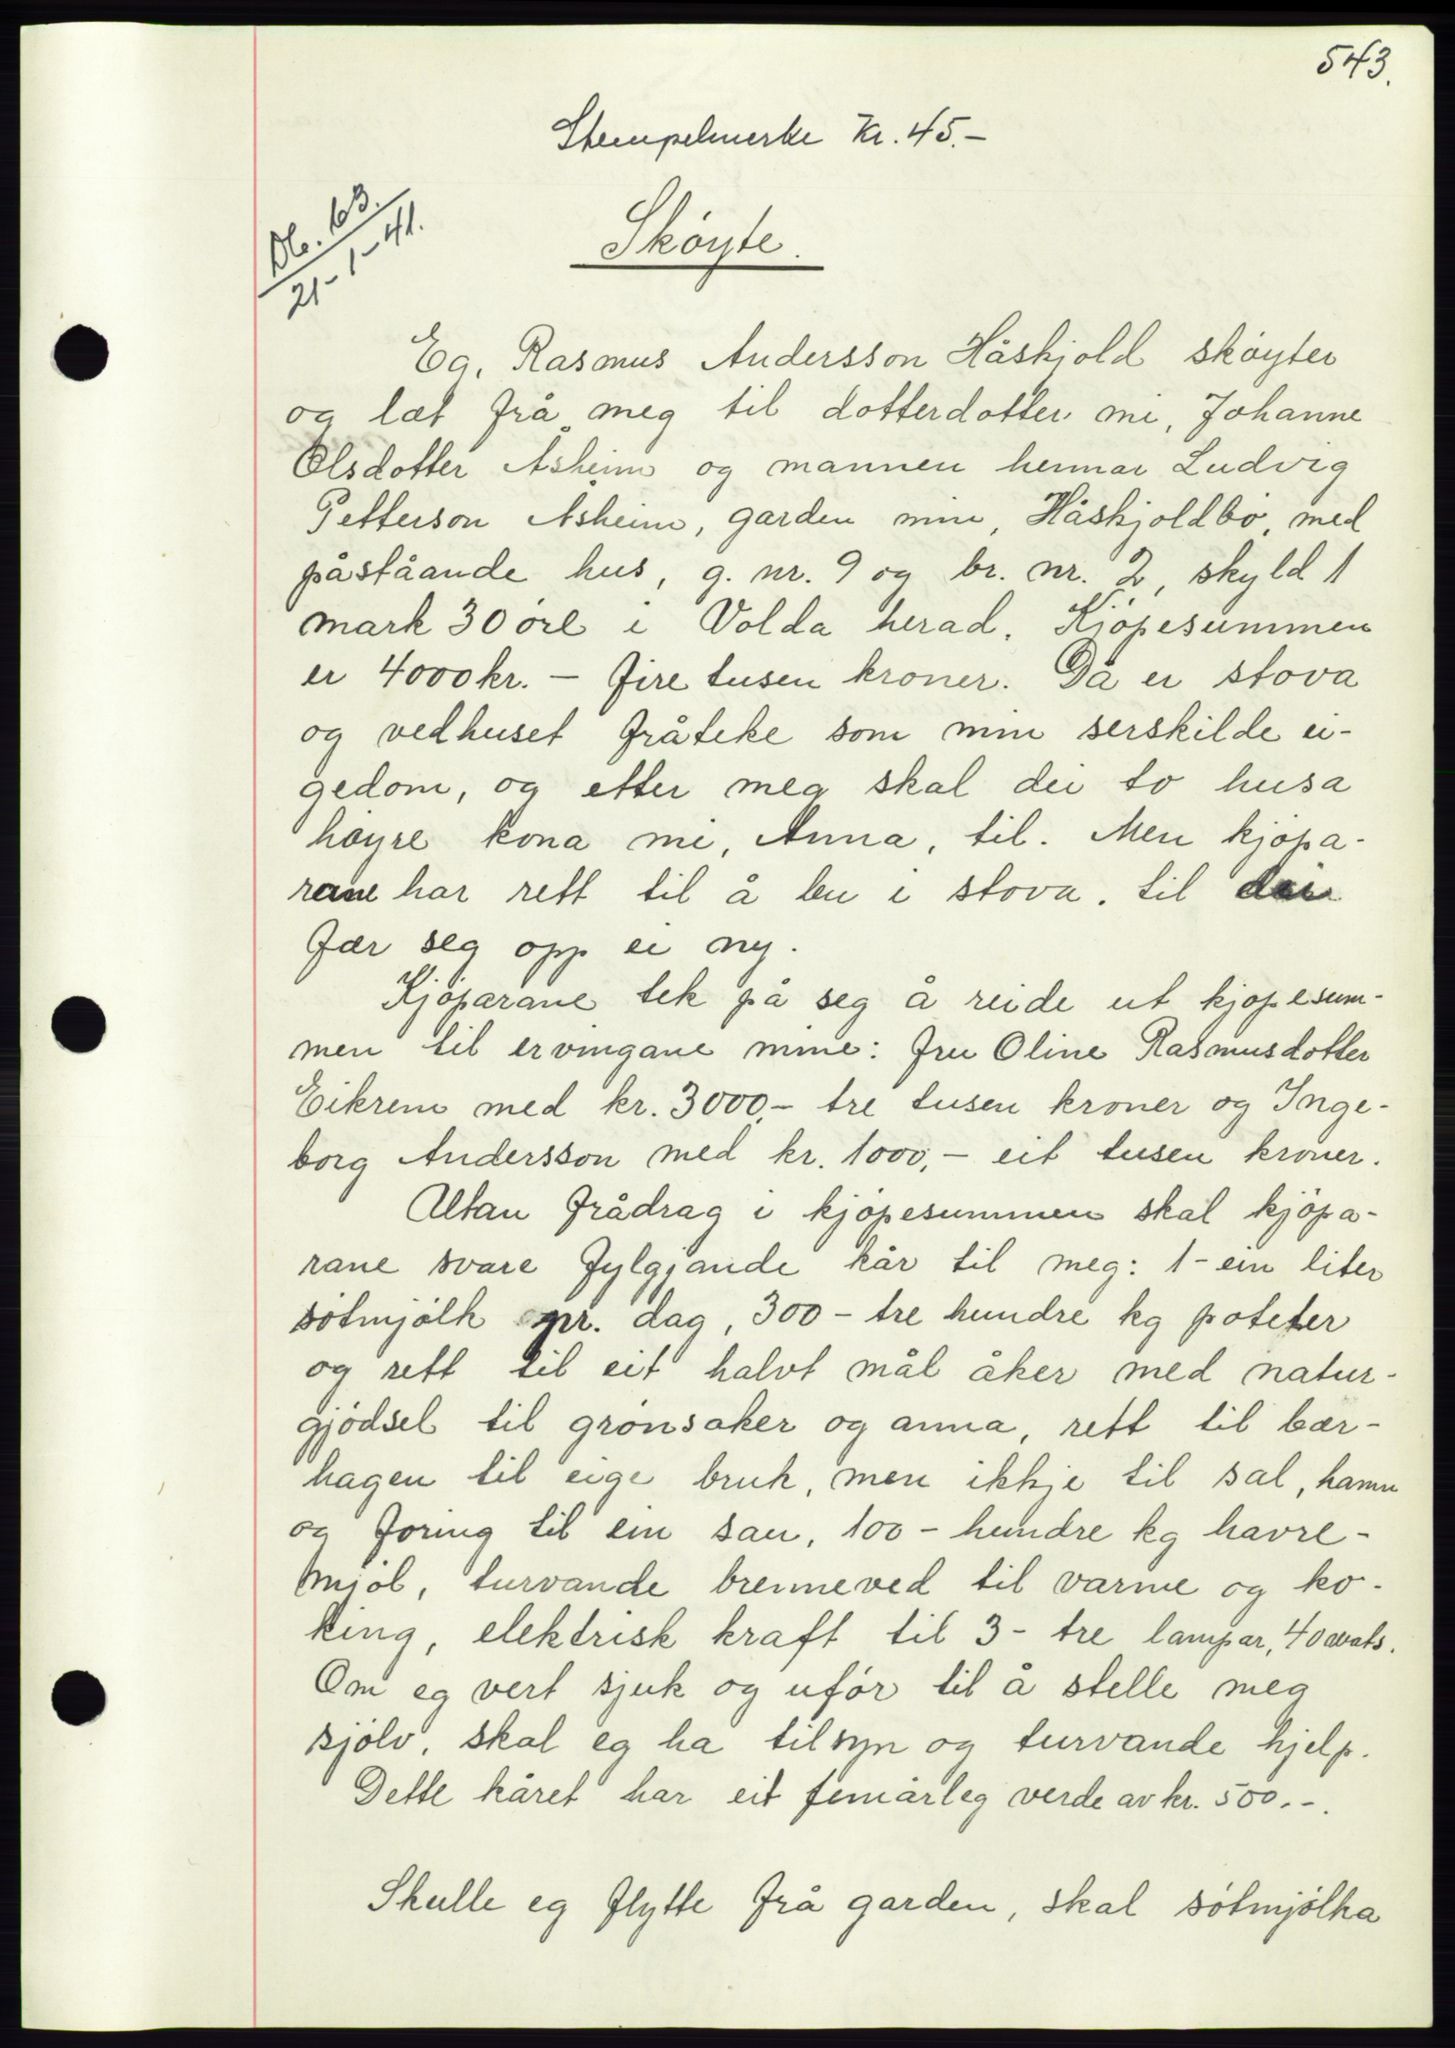 543.
Stempelmerke kr. 45.-
Db. 63.
21-1-41.
Skøyte.
Eg, Rasmus Andersson Håskjold skøyter
og læt frå meg til dotterdotter mi, Johanne
Olsdotter Åsheim og mannen hennar Ludvig
Petterson Åsheim, garden min, Håskjoldbø, med
påståande hus, g. nr. 9 og br. nr. 2, skyld 1
mark 30 øre i Volda herad. Kjøpesummen
er 4000 kr. - fire tusen kroner. Då er stova
og vedhuset fråteke som min serskilde ei-
gedom, og etter meg skal dei to husa
høyre kona mi, Anna, til. Men kjøpa-
rane har rett til å bu i stova, til dei
fær seg opp ei ny.
Kjøparane tek på seg å reide ut kjøpesum-
men til ervingane mine: fru Oline Rasmusdotter
Eikrem med kr. 3000,- tre tusen kroner og Inge-
borg Andersson med kr. 1000,- eit tusen kroner.
Utan frådrag i kjøpesummen skal kjøpa-
rane svare fylgjande kår til meg: 1 - ein liter
søtmjølk pr. dag, 300 - tre hundre kg poteter
og rett til eit halvt mål åker med natur-
gjødsel til grønsaker og anna, rett til bær-
hagen til eige bruk, men ikkje til sal, hamn
og foring til ein sau, 100 - hundre kg havre-
mjøl, turvande brenneved til varme og ko-
king, elektrisk kraft til 3 - tre lampar, 40 wats.
Om eg vert sjuk og ufør til å stelle meg
sjølv, skal eg ha tilsyn og turvande hjelp.
Dette kåret har eit femårleg verde av kr. 500.-.
Skulle eg flytte frå garden, skal søtmjølka